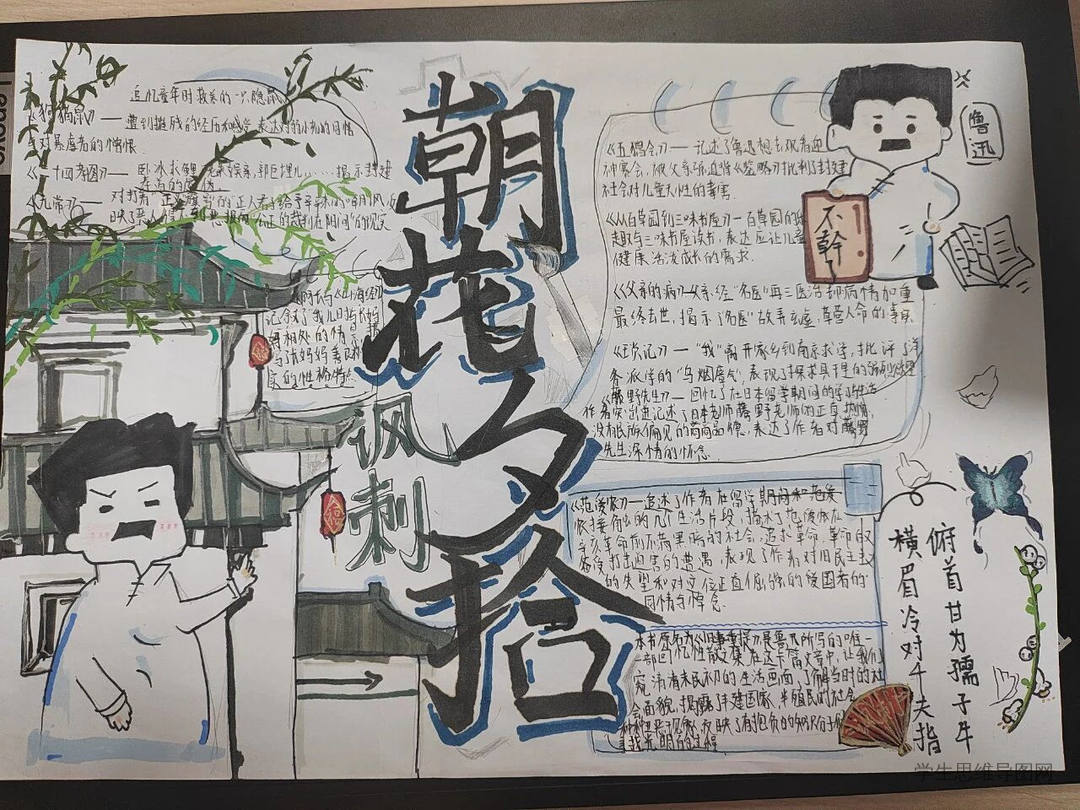 追忆童年时救养的一只隐鼠
《狗猫鼠》——遭到摧残的经历和感受 表达对弱小者的同情
与对暴虐者的憎恨
《二十四孝图》—— 卧冰求鲤 老莱娱亲 郭巨埋儿……揭示封建
孝道的虚伪
《无常》——
《阿长与《山海经》》
记叙了我儿时与长妈
妈相处的情景
朝花夕拾
讽刺
《五猖会》——记述了鲁迅想去观看迎
神赛会,被父亲强迫背《鉴略》批判了封建
社会对儿童天性的毒害.
《从百草园到三味书屋》—百草园的
趣与三味书屋读书,表达应让儿童
健康活泼成长的需求.
《父亲的病》父亲经“名医”再三医治却病情加重
最终去世,揭示了“名医”故弄玄虚,草菅人命的事实
《琐记》——“我”离开家乡到南京求学,批评了洋
务派学的“乌烟瘴气”,表现了探求真理的强烈欲望
《藤野先生》——回忆了在日本留学期间的学习生活
作者突出记述了日本老师藤野老师的正直 热情
没有民族偏见的高尚品德,表达了作者对藤野
先生深情的怀念
《范爱农》——追述了作者在留学期间和范爱
农接触的几个生活片段,描术了范爱农在
辛亥革命前不满黑暗的社会,追求革命,革命后又
备受打击迫害的遭遇,表现了作者对旧民主主义
的失望和对这位正直倔强的爱国者的
同情与悼念.
本书原名《旧事重提》是鲁迅所写的唯一
一部回忆性散文集 在这十篇文章中,让我们
窥清末民初的生活画面,了解当时的社
会面貌,揭露了封建国家、半殖民时社会
鲁迅
不幹
俯首甘为孺子牛
横眉冷对千夫指
学生思维导图网